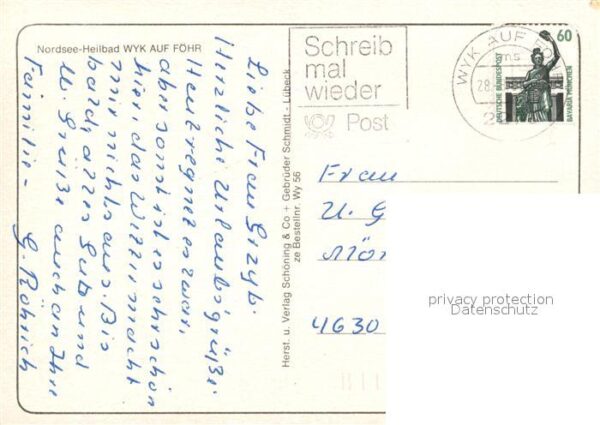 Nordsee-Heilbad WYK AUF FÖHR
Liebe Frau Grzyb.
Herzliche Urlaubsgrüße.
Heut regnet es zwar,
aber sonst ist es sehr schön
hier, das Wetter macht
mir nichts aus. Bis
bald alles Gute und
lb. Grüße auch an Ihre
Familie - G. Röhrich
Herst. u. Verlag Schöning & Co + Gebrüder Schmidt - Lübeck
ze Bestellnr. Wy 56
Schreib
mal
wieder
Post
WYK AUF FÖ
28.
60
DEUTSCHE BUNDESPOST
BAVARIA MÜNCHEN
Frau
U. G
Mör
4630
privacy protection
Datenschutz